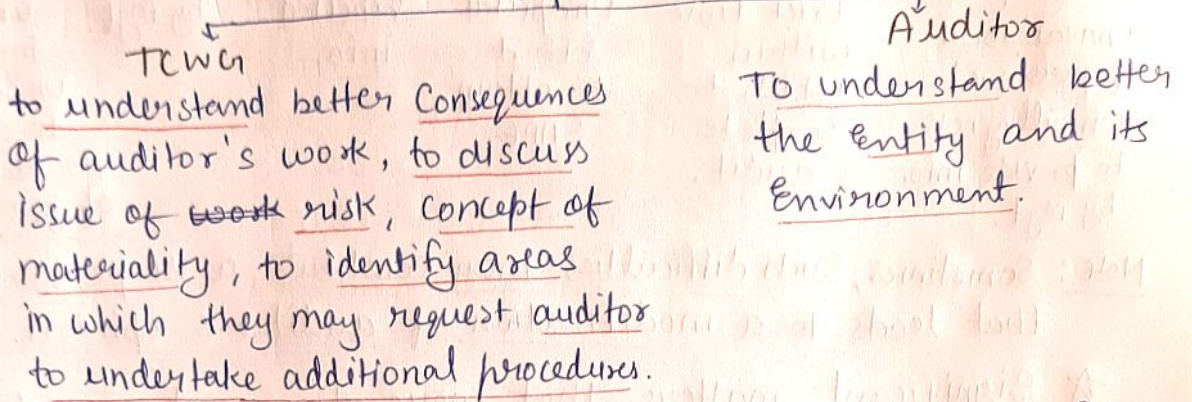 TCWG
to understand better Consequences
of auditor's work, to discuss
issue of work risk, Concept of
materiality, to identify areas
in which they may request auditor
to undertake additional procedures.
Auditor
To understand better
the Entity and its
Environment.